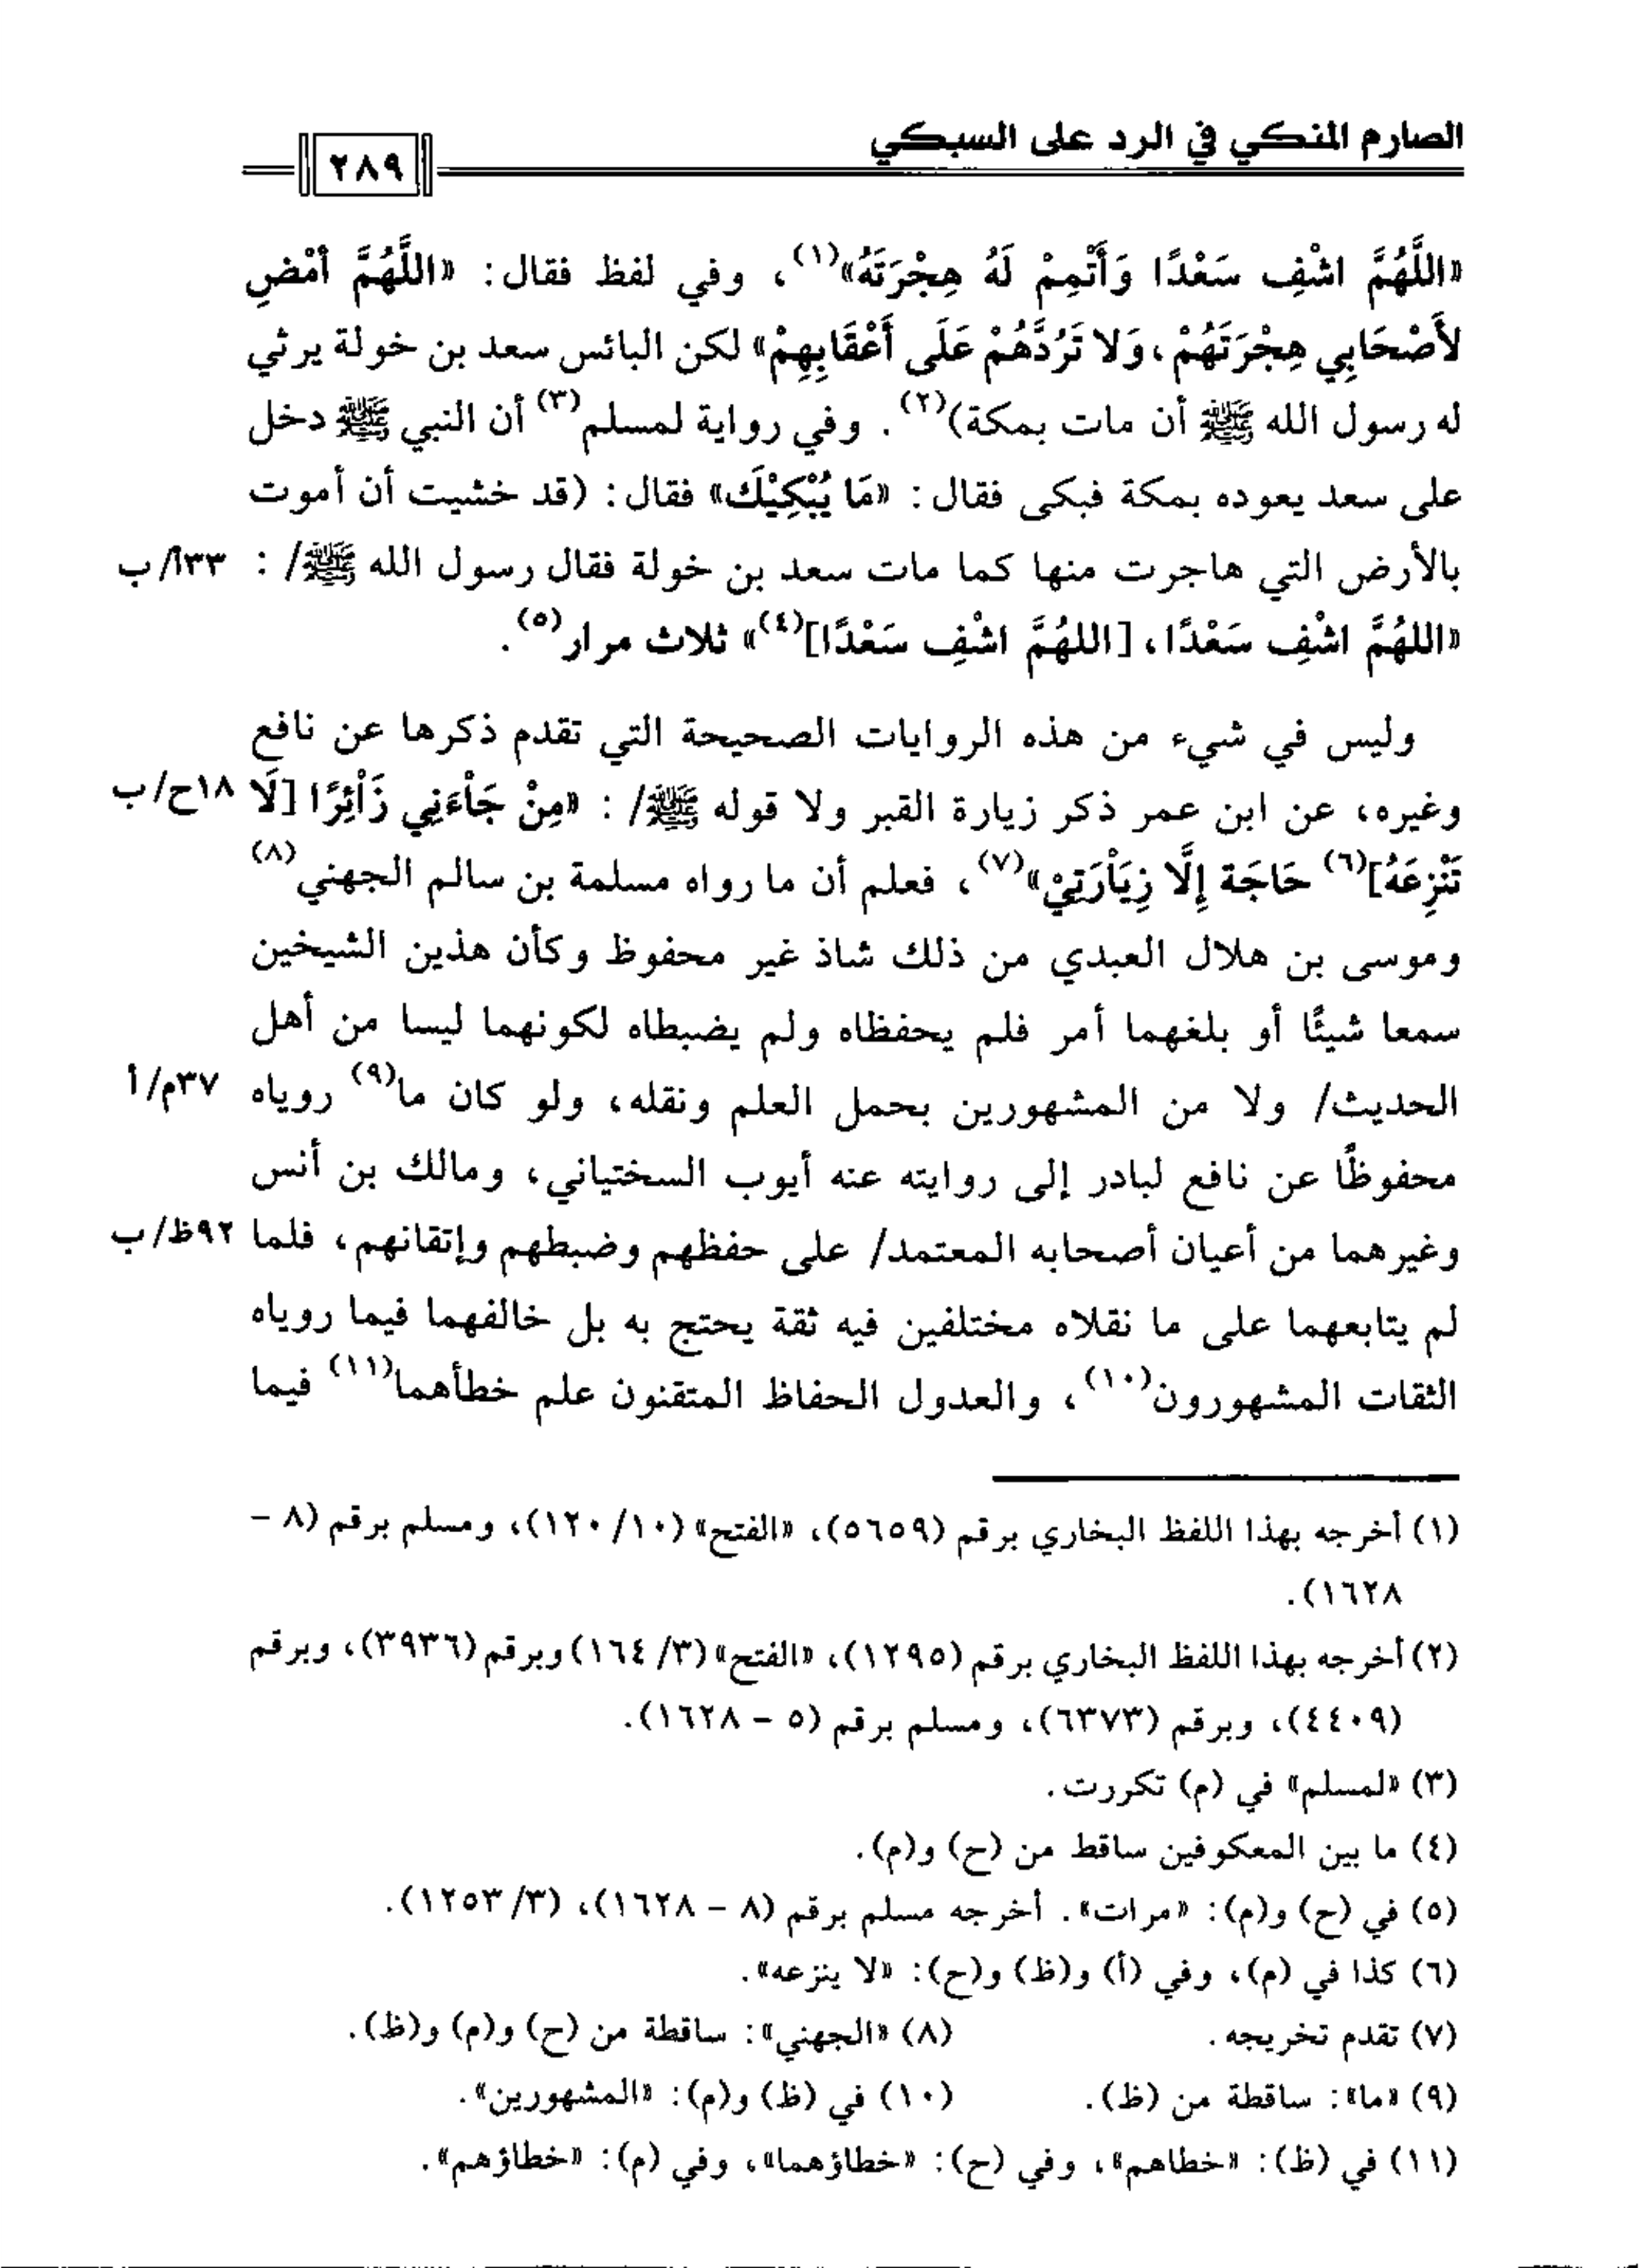 الصارم المنكي في الرد على السبكي
٢٨٩
«اللَّهُمَّ اشْفِ سَعْدًا وَأَتْمِمْ لَهُ هِجْرَتَهُ»(١)، وفي لفظ فقال: «اللَّهُمَّ أمْضِ
لأَصْحَابِي هِجْرَتَهُمْ، وَلا تَرُدَّهُمْ عَلَى أَعْقَابِهِمْ» لكن البائس سعد بن خولة يرثي
له رسول الله ﷺ أن مات بمكة)(٢). وفي رواية لمسلم(٣) أن النبي ﷺ دخل
على سعد يعوده بمكة فبكى فقال: «مَا يُبْكِيْكَ» فقال: (قد خشيت أن أموت
بالأرض التي هاجرت منها كما مات سعد بن خولة فقال رسول الله ﷺ/ : ٣٣أ/ب
«اللهُمَّ اشْفِ سَعْدًا، [اللهُمَّ اشْفِ سَعْدًا](٤)» ثلاث مرار(٥).
وليس في شيء من هذه الروايات الصحيحة التي تقدم ذكرها عن نافع
وغيره، عن ابن عمر ذكر زيارة القبر ولا قوله ﷺ/ : «مِنْ جَاْءَنِي زَاْئِرًا [لَا ١٨ح/ب
تَنْزِعَهُ](٦) حَاجَة إِلَّا زِيَاْرَتِيْ»(٧)، فعلم أن ما رواه مسلمة بن سالم الجهني(٨)
وموسى بن هلال العبدي من ذلك شاذ غير محفوظ وكأن هذين الشيخين
سمعا شيئًا أو بلغهما أمر فلم يحفظاه ولم يضبطاه لكونهما ليسا من أهل
الحديث/ ولا من المشهورين بحمل العلم ونقله، ولو كان ما(٩) روياه ٣٧م/أ
محفوظًا عن نافع لبادر إلى روايته عنه أيوب السختياني، ومالك بن أنس
وغيرهما من أعيان أصحابه المعتمد/ على حفظهم وضبطهم وإتقانهم، فلما ٩٢ظ/ب
لم يتابعهما على ما نقلاه مختلفين فيه ثقة يحتج به بل خالفهما فيما روياه
الثقات المشهورون(١٠)، والعدول الحفاظ المتقنون علم خطأهما(١١) فيما
(١) أخرجه بهذا اللفظ البخاري برقم (٥٦٥٩)، «الفتح» (١٠/ ١٢٠)، ومسلم برقم (٨ -
١٦٢٨).
(٢) أخرجه بهذا اللفظ البخاري برقم (١٢٩٥)، «الفتح» (٣/ ١٦٤) وبرقم (٣٩٣٦)، وبرقم
(٤٤٠٩)، وبرقم (٦٣٧٣)، ومسلم برقم (٥ - ١٦٢٨).
(٣) «لمسلم» في (م) تكررت.
(٤) ما بين المعكوفين ساقط من (ح) و(م).
(٥) في (ح) و(م): «مرات». أخرجه مسلم برقم (٨ - ١٦٢٨)، (٣/ ١٢٥٣).
(٦) كذا في (م)، وفي (أ) و(ظ) و(ح): «لا ينزعه».
(٧) تقدم تخريجه. (٨) «الجهني»: ساقطة من (ح) و(م) و(ظ).
(٩) «ما»: ساقطة من (ظ). (١٠) في (ظ) و(م): «المشهورين».
(١١) في (ظ): «خطاهم»، وفي (ح): «خطاؤهما»، وفي (م): «خطاؤهم».